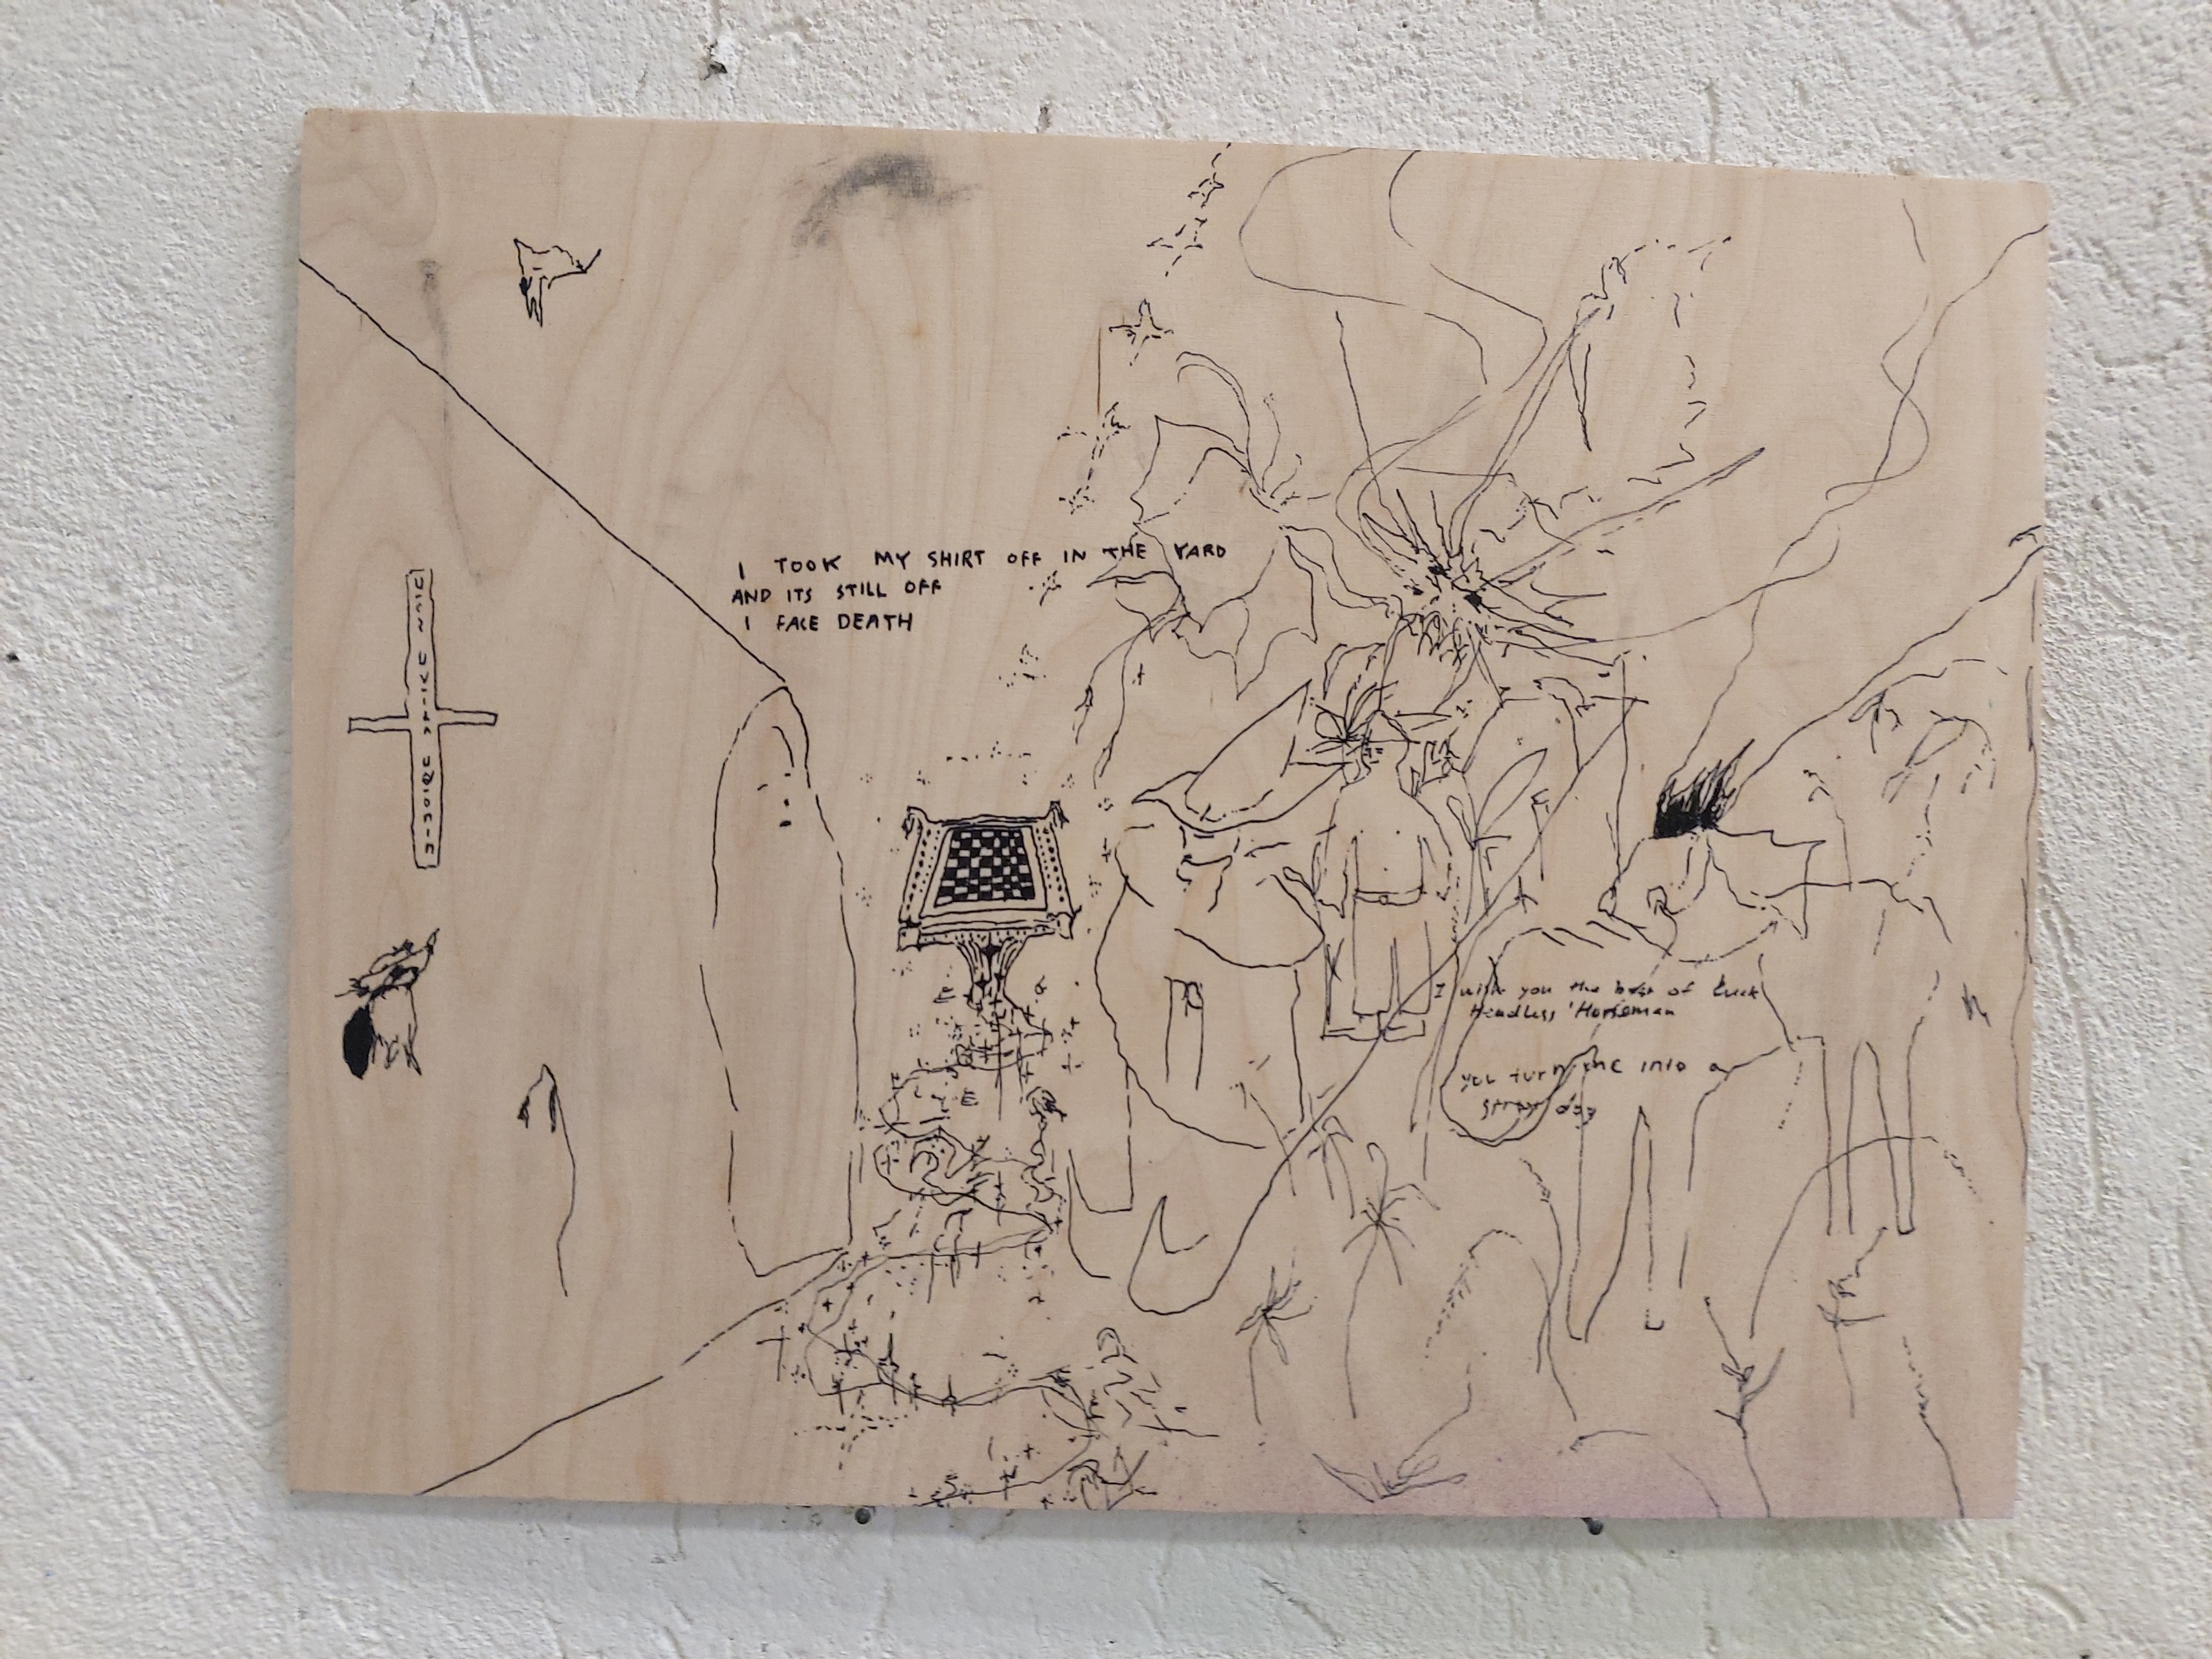 I TOOK MY SHIRT OFF IN THE YARD
AND ITS STILL OFF
I FACE DEATH
I wish you the best of luck
Headless 'Horseman
you turn me into a
stray dog